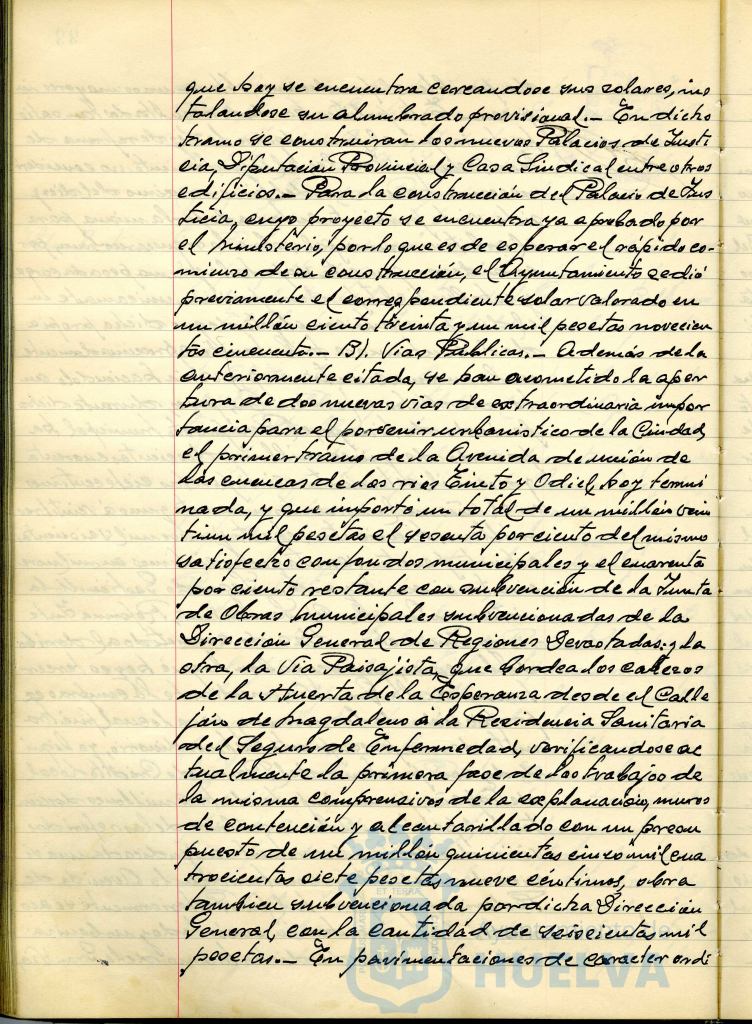 que hoy se encuentra cercandose sus solares, ins
talandose su alumbrado provisional.— En dicho
tramo se construiran los nuevos Palacios de Justi
cia, Diputación Provincial y Casa Sindical entre otros
edificios.— Para la construcción del Palacio de Jus
ticia, cuyo proyecto se encuentra ya aprobado por
el Ministerio, por lo que es de esperar el rápido co-
mienzo de su construcción, el Ayuntamiento cedió
previamente el correspondiente solar valorado en
un millón ciento treinta y un mil pesetas novecien
tos cincuenta.— B). Vias Públicas.— Además de la
anteriormente citada, se han acometido la aper
tura de dos nuevas vias de extraordinaria impor
tancia para el porvenir urbanistico de la Ciudad,
el primer tramo de la Avenida de unión de
las cuencas de los rios Tinto y Odiel, hoy termi
nada, y que importó un total de un millón vein
tiun mil pesetas el sesenta por ciento del mismo
satisfecho con fondos municipales y el cuarenta
por ciento restante con subvención de la Junta
de Obras Municipales subvencionadas de la
Dirección General de Regiones Devastadas; y la
otra, la Via Paisajista, que bordea los cabezos
de la Huerta de la Esperanza desde el Calle
jón de Magdaleno a la Residencia Sanitaria
del Seguro de Enfermedad, verificandose ac
tualmente la primera fase de los trabajos de
la misma comprensivos de la explanación, muros
de contención y alcantarillado con un presu
puesto de un millón quinientas cinco mil cua
trocientas siete pesetas nueve céntimos, obra
tambien subvencionada por dicha Dirección
General, con la cantidad de seiscientas mil
pesetas.— En pavimentaciones de caracter ordi
HUELVA